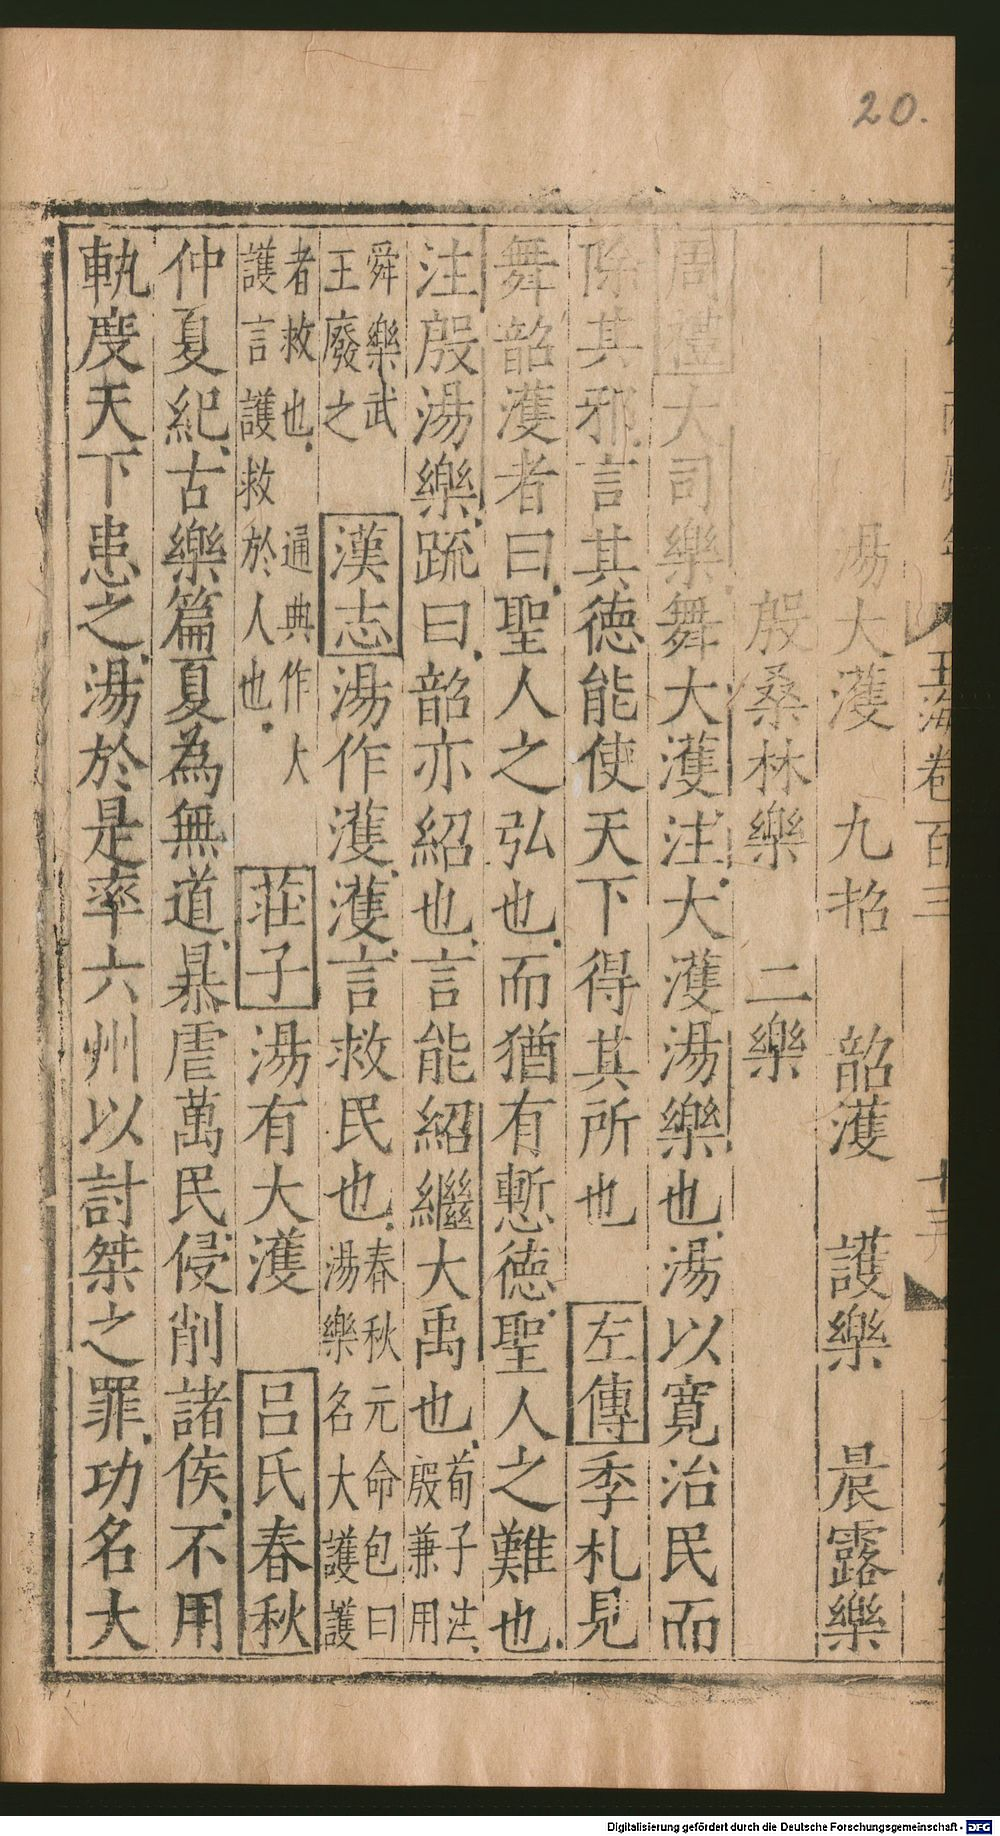 20.
玉海卷百三
湯大濩 九招 韶濩 護樂 晨露樂
殷桑林樂 二樂
周禮大司樂舞大濩注大濩湯樂也湯以寛治民而
除其邪言其徳能使天下得其所也 左傳季札見
舞韶濩者曰聖人之弘也而猶有慙徳聖人之難也
注殷湯樂䟽曰韶亦紹也言能紹繼大禹也荀子注殷兼用
舜樂武王廢之 漢志湯作濩濩言救民也春秋元命包曰湯樂名大護護
者救也 通典作大護言護救於人也 莊子湯有大濩 吕氏春秋
仲夏紀古樂篇夏為無道暴虐萬民侵削諸侯不用
軌度天下患之湯於是率六州以討桀之罪功名大
Digitalisierung gefördert durch die Deutsche Forschungsgemeinschaft - DFG